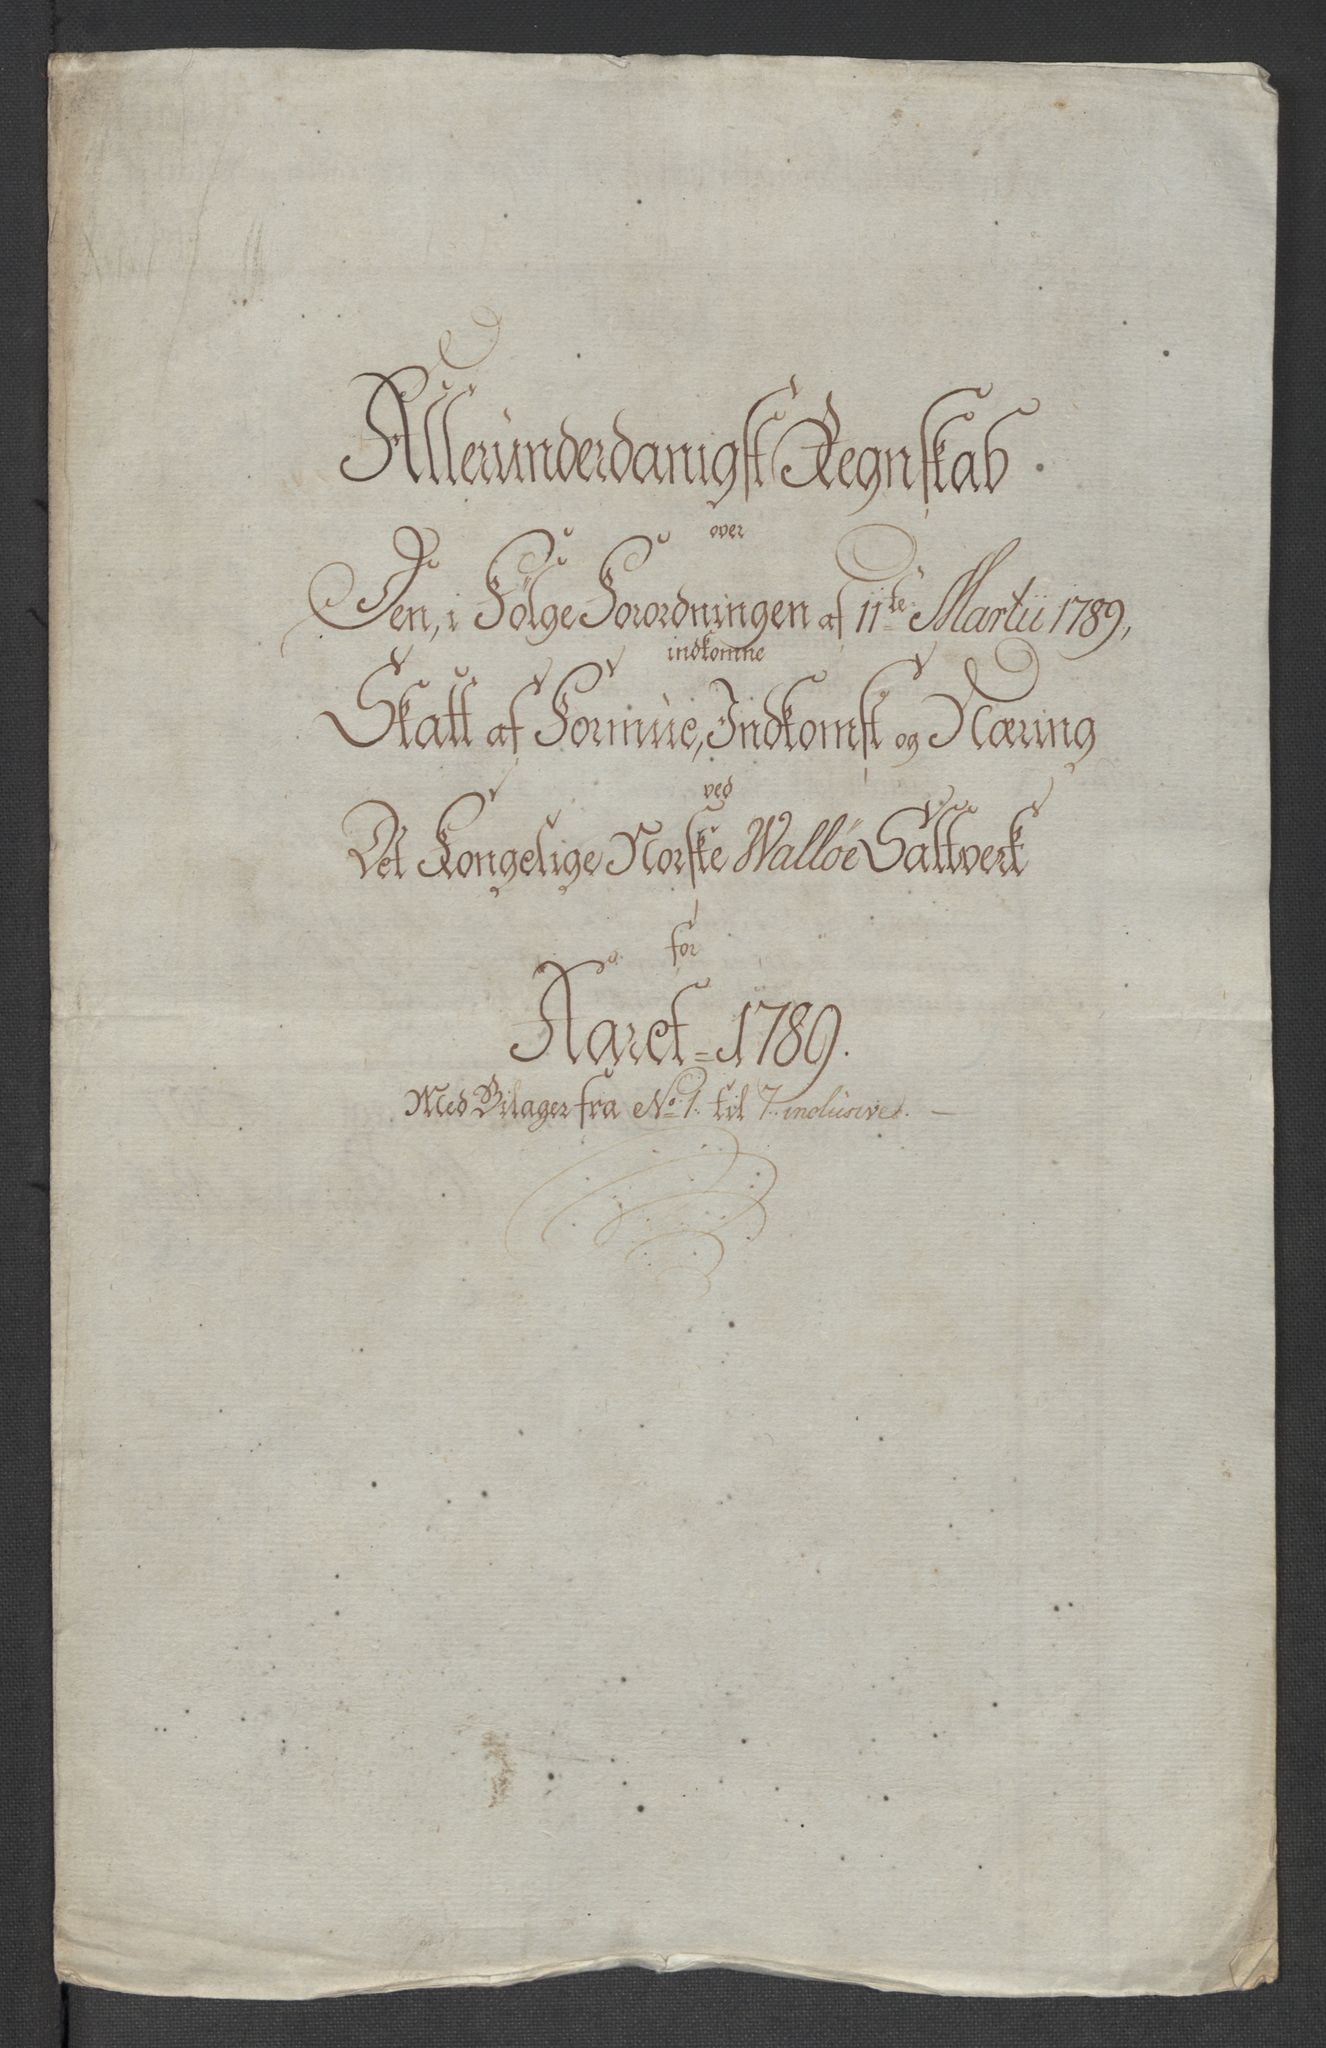 Allerunderdanigst Regnskab
over
Den, i Følge Forordningen af 11te Martii 1789,
indkomne
Skatt af Formue, Indkomst og Næring
ved
Det Kongelige Norske Walløe Saltverk
for
Aaret 1789.
Med Bilager fra No 1. til 7. inclusive.